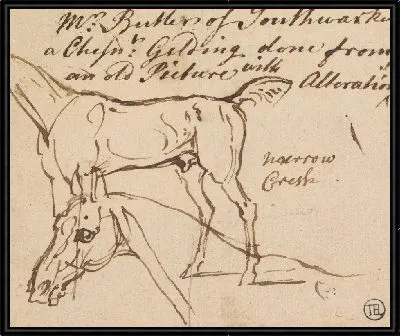 Mr. Butler of Southwark
a Chesnt. Gelding done from
an old Picture with
Alteration
narrow
Cresh